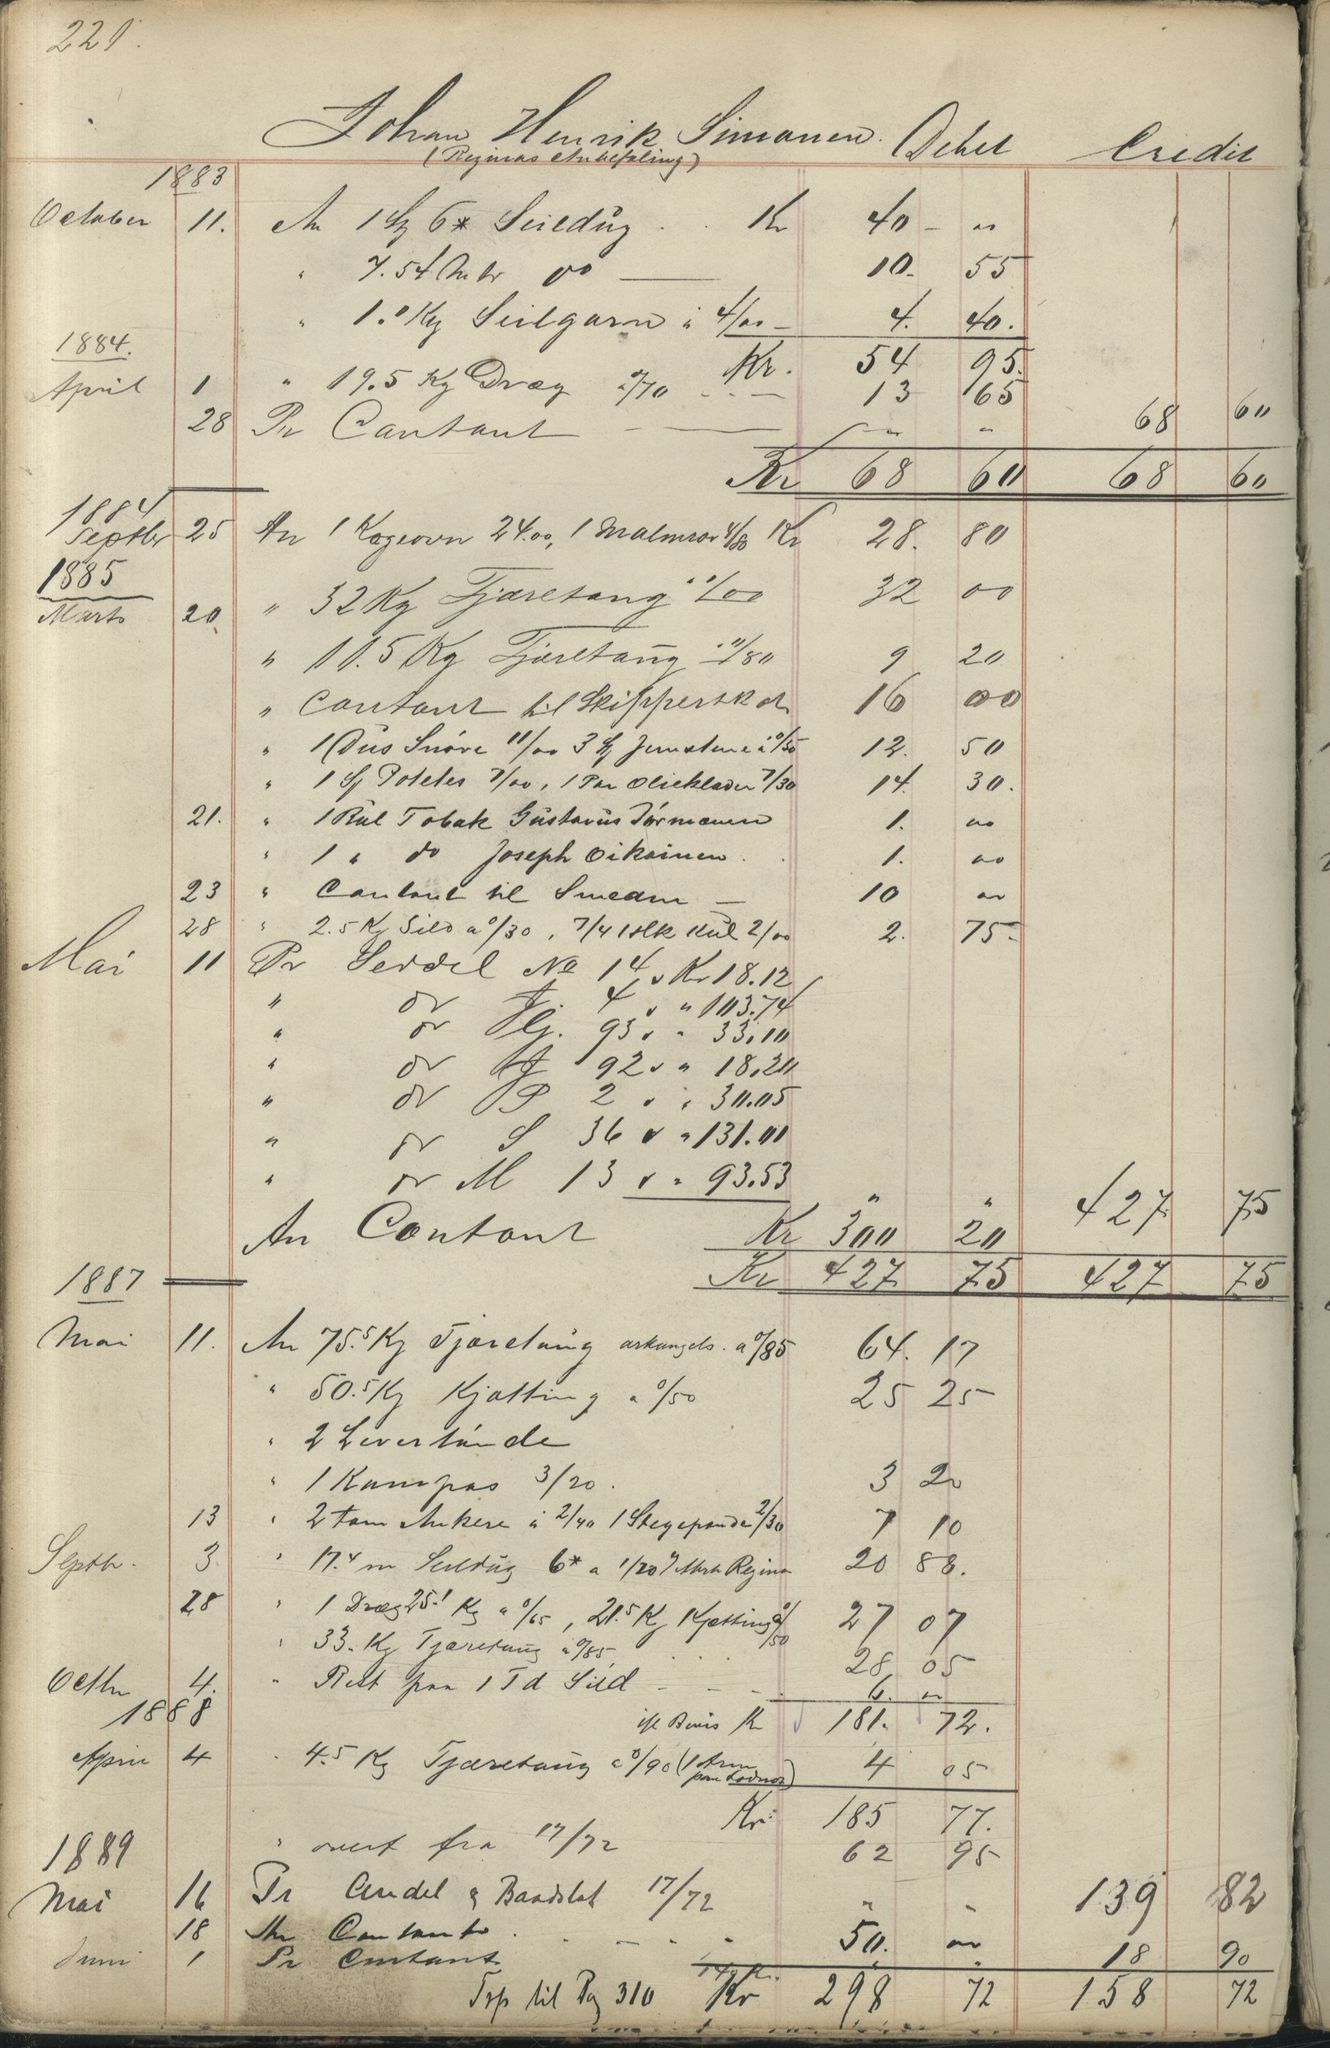 221.
Johan Henrik Simonen. Debet Credit
(Reginas Anbefaling)
1883
October 11. An 1 6* Seildug Kr 40 - "
" 7.54 Mtr do 10. 55
" 1.0 Kg Seilgarn à 4/00 - 4. 40.
Kr. 54 95.
1884.
April 1 " 19.5 Kg Dræg 0/70 13 65
28 Pr Contant " " 68 60
Kr 68 60 68 60
1884
Septbr 25 An 1 Kogeovn 24.00, 1 Malmror 4/80 Kr 28. 80
1885
Marts 20. " 32 Kg Tjæretaug 1/00 32 00
" 11.5 Kg Tjæretaug 0/80 9 20
" Contant til Skippersk 16 00
" 1 Dus Snöre 11/00 3 à 0/50 12. 50
" 1 Potetes 7/00, 1 Par Olieklæder 7/30 14. 30.
21. " 1 Rul Tobak Gustavus 1. 00
" 1 " do Joseph Oikainen . 1. 00
23 " Contant til Smeden - 10 00
28 " 2.5 Kg Sild a 0/30, 7/4 Kul 2/00 2. 75-
Mai 11 Pr Seddel No 14 v Kr 18.12
" do 4 v " 103.74
" do 93 v " 33.10
" do 92 v " 18.20
" do P 2 v " 30.05
" do S 36 v " 131.00
" do M 13 v " 93.53 " " 427 75
An Contant Kr 300 20
Kr 427 75 427 75
1887
Mai 11. An 75.5 Kg Tjæretaug arkangels. a 0/85 64. 17
" 50.5 Kg Kjætting a 0/50 25 25
" 2 Levertönde
" 1 Kompas 3/20. 3 20
13 " 2 tom Ankere à 2/40 1 Stegepande 2/30 7 10
Septbr. 3. " 17.4 m Seildug 6* a 1/20 Regina 20 88.
28 " 1 Dræg 25.1 Kg a 0/65, 21.5 Kg Kjætting 0/50 27 07
" 33. Kg Tjæretaug a 0/85 28, 05
Octbr 4. " Rest paa 1 Td Sild - - - 6. 00
1888
ifl Bevis Kr 181. 72.
April 4 " 4.5 Kg Tjæretaug a 0/90 4 05
Kr. 185 77.
" overf fra 17/72 62 95
1889
Mai 16 Pr Andel & Baadslot 17/72 " " 139 82
18 An Contant . . - - 50. 00
Juni 1 Pr Contant " 18 90
Trp til Pag 310 Kr 298 72 158 72